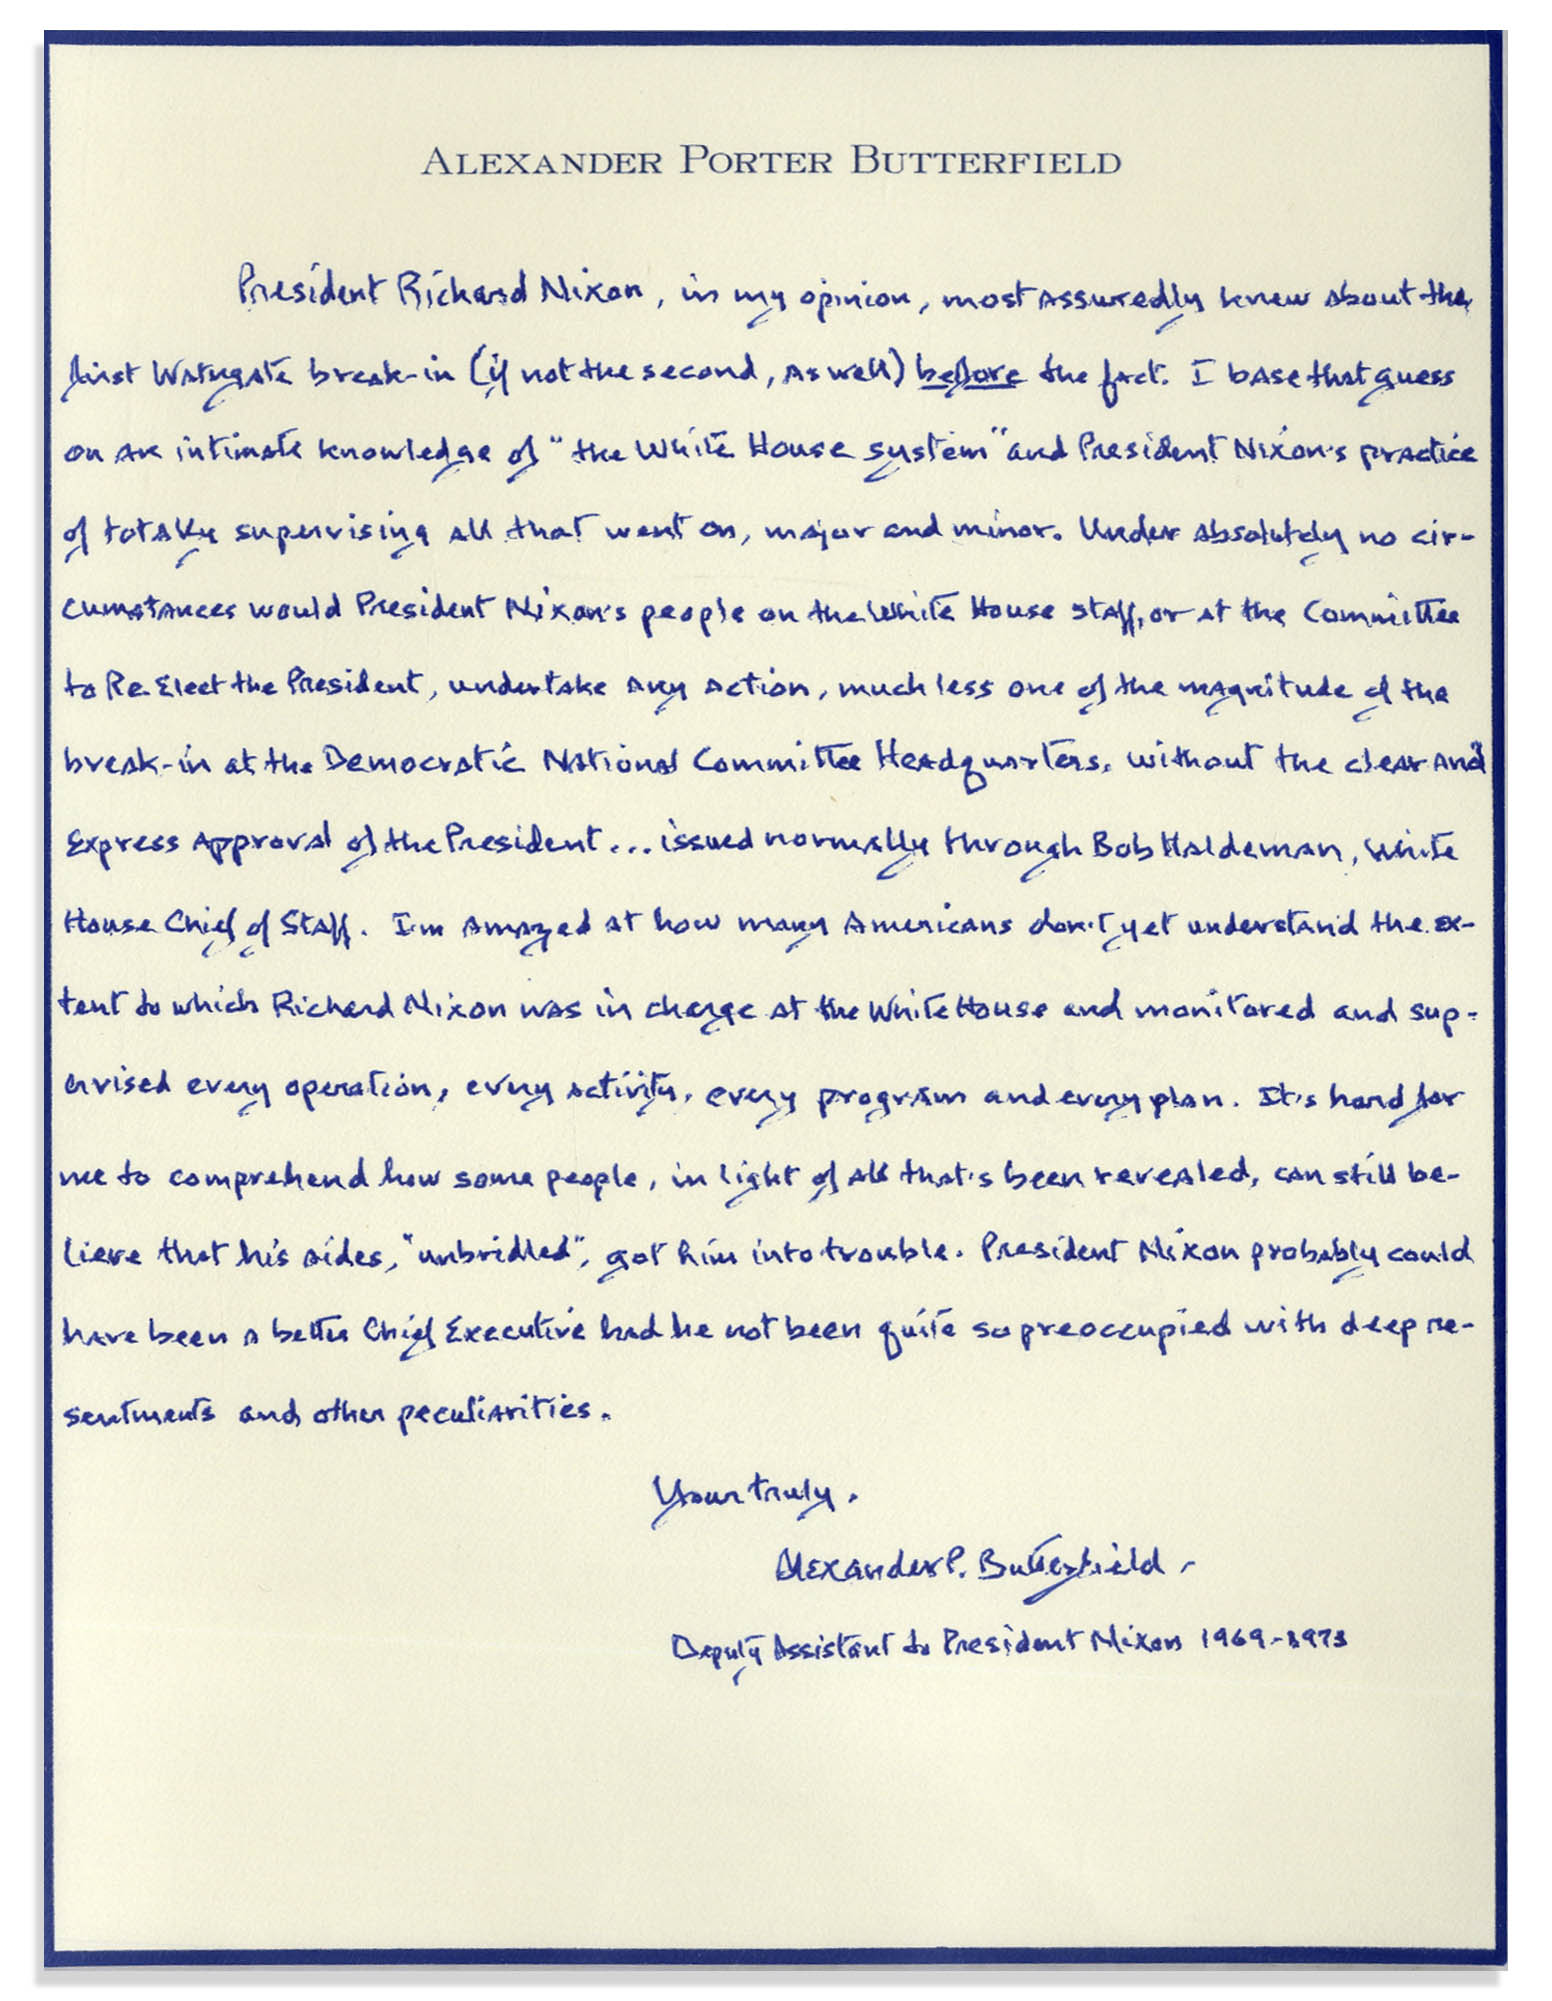 ALEXANDER PORTER BUTTERFIELD
President Richard Nixon, in my opinion, most assuredly knew about the
first Watergate break-in (if not the second, as well) before the fact. I base that guess
on an intimate knowledge of "the White House system" and President Nixon's practice
of totally supervising all that went on, major and minor. Under absolutely no cir-
cumstances would President Nixon's people on the White House staff, or at the Committee
to Re-Elect the President, undertake any action, much less one of the magnitude of the
break-in at the Democratic National Committee Headquarters, without the clear and
express approval of the President... issued normally through Bob Haldeman, White
House Chief of Staff. I'm amazed at how many Americans don't yet understand the ex-
tent to which Richard Nixon was in charge at the White House and monitored and sup-
ervised every operation, every activity, every program and every plan. It's hard for
me to comprehend how some people, in light of all that's been revealed, can still be-
lieve that his aides, "unbridled", got him into trouble. President Nixon probably could
have been a better Chief Executive had he not been quite so preoccupied with deep re-
sentments and other peculiarities.
Yours truly,
Alexander P. Butterfield
Deputy Assistant to President Nixon 1969-1973